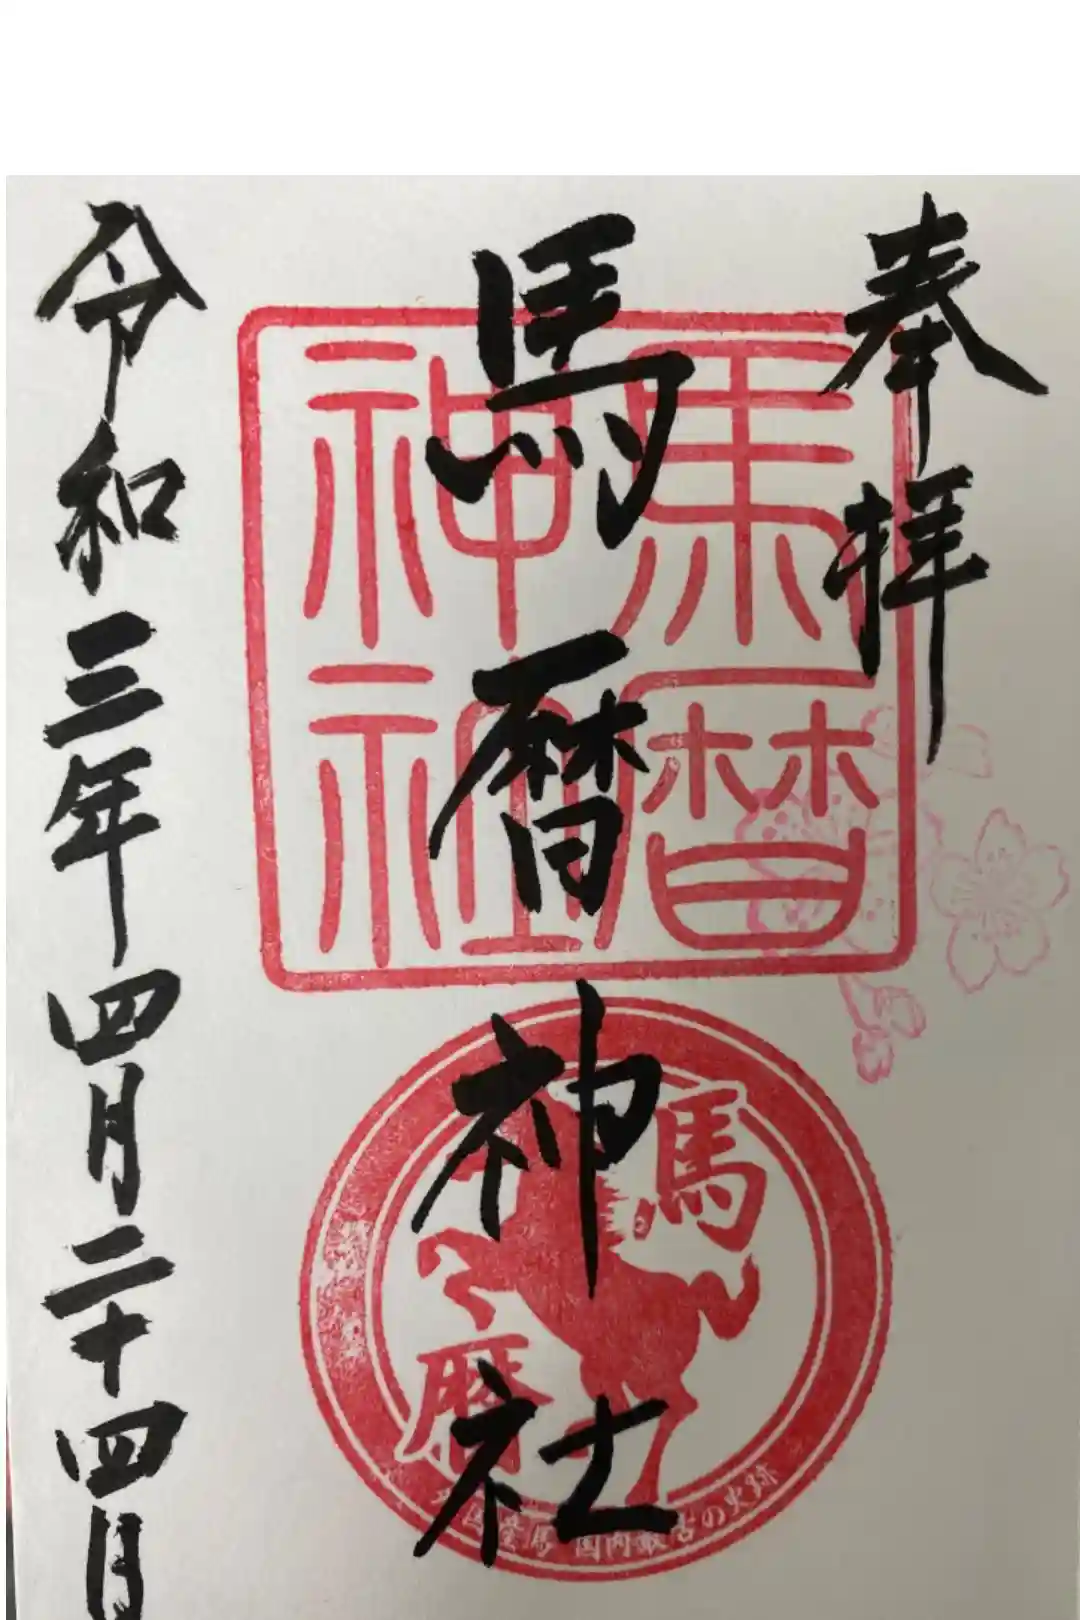 奉拝
馬暦神社
令和三年四月二十四日
馬暦
神社
馬
暦
国内最古の史跡